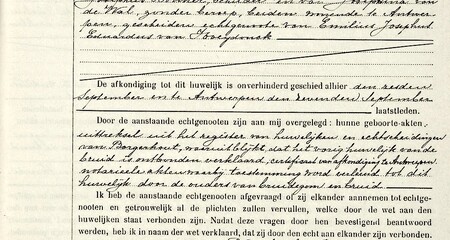 de Wal, zonder beroep, beiden wonende te Antwer-
pen, gescheiden echtgenoote van Emilius Josephus
Eduardus van Tooydonck
De afkondiging tot dit huwelijk is onverhinderd geschied alhier den zesden
September en te Antwerpen den zevenden September
laatstleden.
Door de aanstaande echtgenooten zijn aan mij overgelegd: hunne geboorte-akten,
uittreksel uit het register van huwelijken en echtscheidingen
van Borgerhout, waaruit blijkt, dat het vorig huwelijk van de
bruid is ontbonden verklaard, certificaat van afkondiging te Antwerpen
notarieele akten waarbij toestemming word verleend tot dit
huwelijk door de ouders van bruidegom en bruid
Ik heb de aanstaande echtgenooten afgevraagd of zij elkander aannemen tot echtge-
nooten en getrouwelijk al de plichten zullen vervullen, welke door de wet aan den
huwelijken staat verbonden zijn. Nadat deze vragen door hen bevestigend beantwoord
werden, heb ik in naam der wet verklaard, dat zij door den echt aan elkander zijn verbonden.